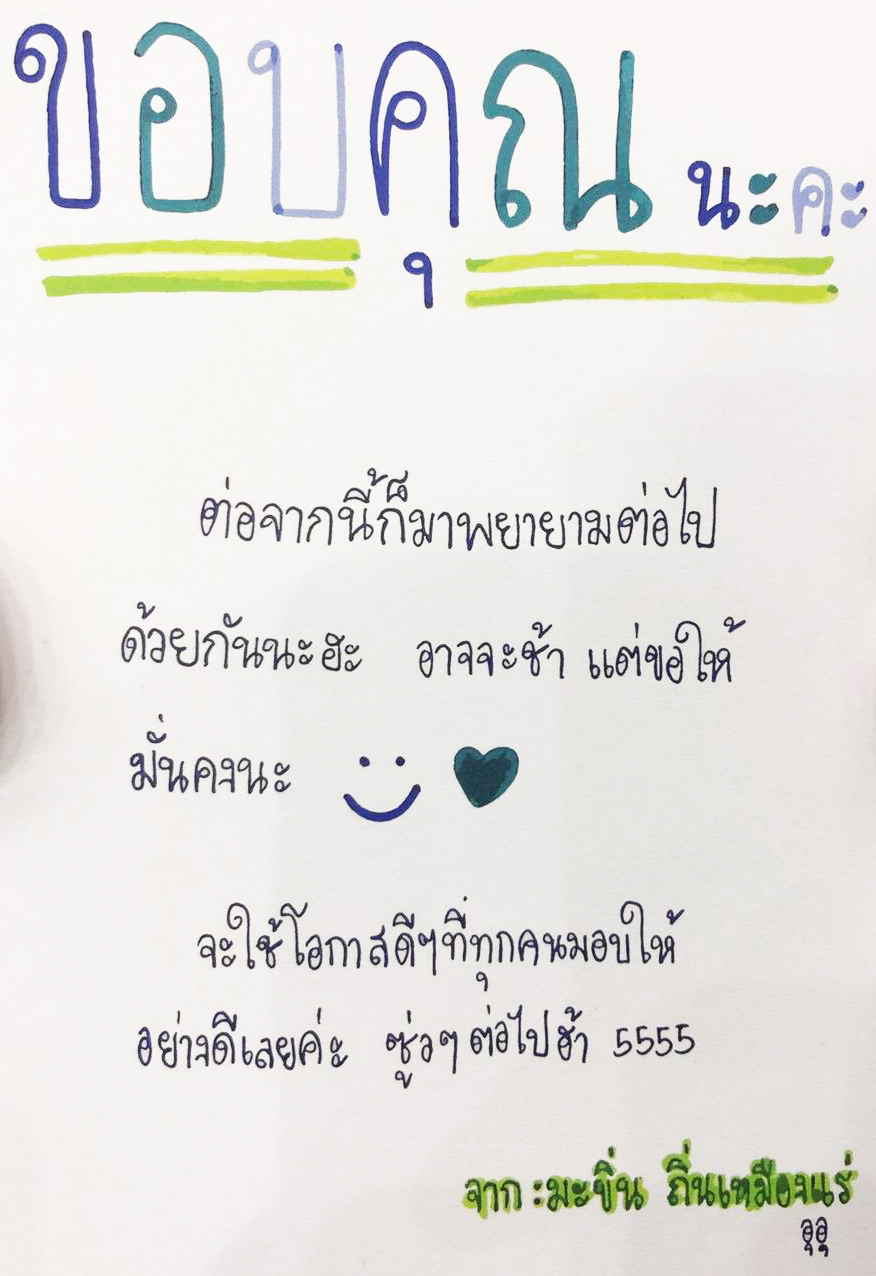 ขอบคุณ นะคะ
ต่อจากนี้ก็มาพยายามต่อไป
ด้วยกันนะฮะ อาจจะช้า แต่ขอให้
มั่นคงนะ
จะใช้โอกาสดีๆที่ทุกคนมอบให้
อย่างดีเลยค่ะ ซู่วๆ ต่อไปฮ้า 5555
จาก : มะขิ่น ถิ่นเหมืองแร่
อุอุ